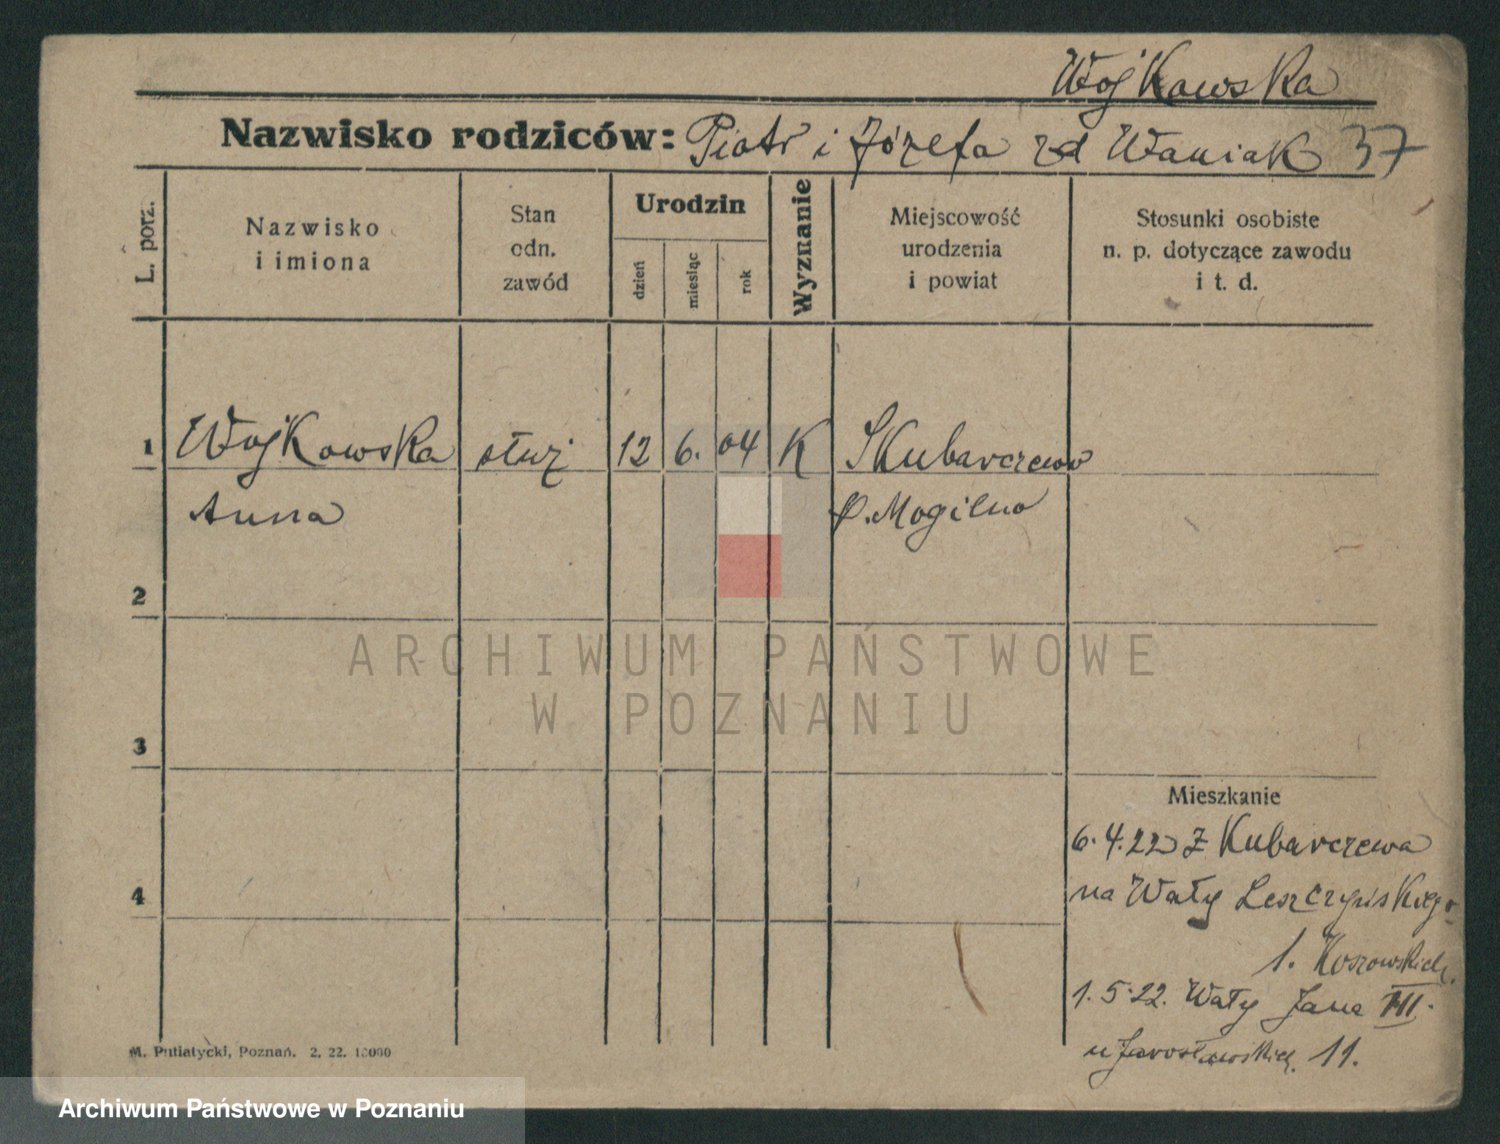 Wojkowska
Nazwisko rodziców: Piotr i Józefa zd Waniak 37
L. porz.
Nazwisko i imiona
Stan odn. zawód
Urodzin
dzień
miesiąc
rok
Wyznanie
Miejscowość urodzenia i powiat
Stosunki osobiste n. p. dotyczące zawodu i t. d.
1 Wojkowska służ 12 6. 04 K SKubarczewo
Anna p. Mogilno
2
ARCHIWUM PAŃSTWOWE
W POZNANIU
3
Mieszkanie
6.4.22 z Kubarczewa
4
na Wały Leszczyńskiego
1. Koszowskich.
1.5.22. Wały Jana III.
u Jarosławskich. 11.
M. Putiatycki, Poznań. 2. 22. 10000
Archiwum Państwowe w Poznaniu